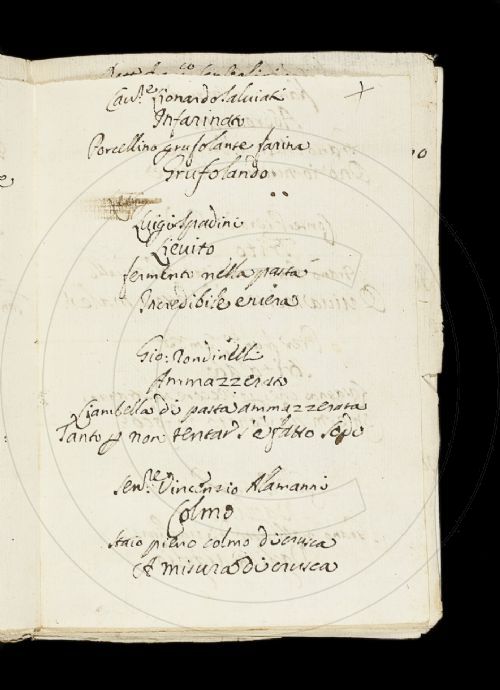 Cau.re Lionardo Saluiati
Infarinato
Porcellino grufolante farina
Grufolando
Luigi Spadini
Lieuito
fermento nella pasta
Incredibile e uera
Gio: Rondinelli
Ammazzerato
Ciambella di pasta ammazzerata
Tanto p non tentar s'è fatto
Sen.re Vincenzio Alamanni
Colmo
Staio pieno colmo di crusca
A misura di crusca